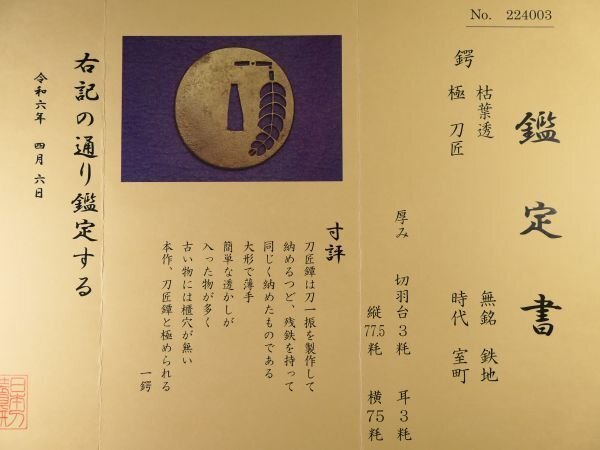 No. 224003
鑑定書
枯葉透 無銘 鉄地
鍔 極 刀匠 時代 室町
厚み 切羽台3粍 耳3粍
縦77.5粍 横75粍
寸評
刀匠鐔は刀一振を製作して
納めるつど、残鉄を持って
同じく納めたものである
大形で薄手
簡単な透かしが
入った物が多く
古い物には櫃穴が無い
本作、刀匠鐔と極められる
一鍔
右記の通り鑑定する
令和六年 四月 六日